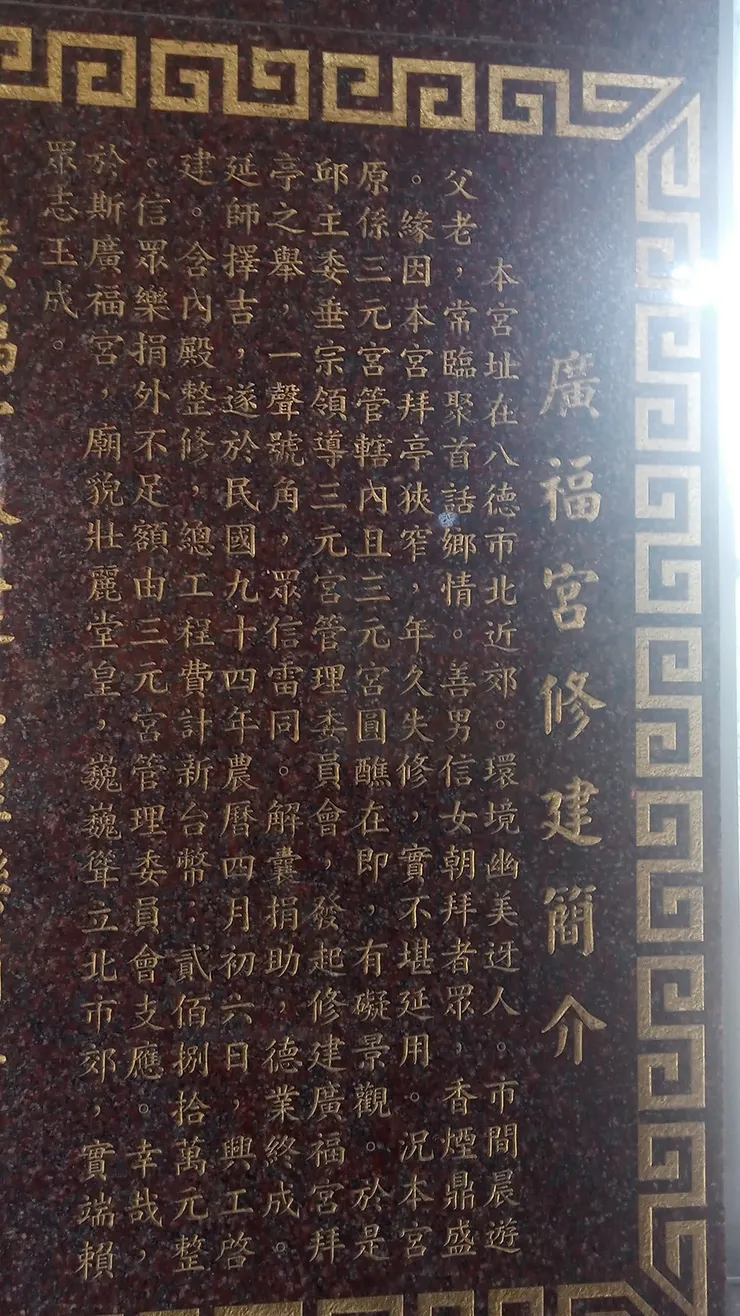 廣福宮修建簡介
本宮址在八德市北近郊。環境幽美迓人。市間晨遊
父老，常臨聚首話鄉情。善男信女朝拜者眾，香煙鼎盛
。緣因本宮拜亭狹窄，年久失修，實不堪延用。況本宮
原係三元宮管轄內且三元宮圓醮在即，有礙景觀。於是
邱主委垂宗領導三元宮管理委員會，發起修建廣福宮拜
亭之舉，一聲號角，眾信雷同。解囊捐助，德業終成。
延師擇吉，遂於民國九十四年農曆四月初六日，興工啓
建。含內殿整修，總工程費計新台幣：貳佰捌拾萬元整
。信眾樂捐外不足額由三元宮管理委員會支應。幸哉，
於斯廣福宮，廟貌壯麗堂皇，巍巍聳立北市郊，實端賴
眾志玉成。